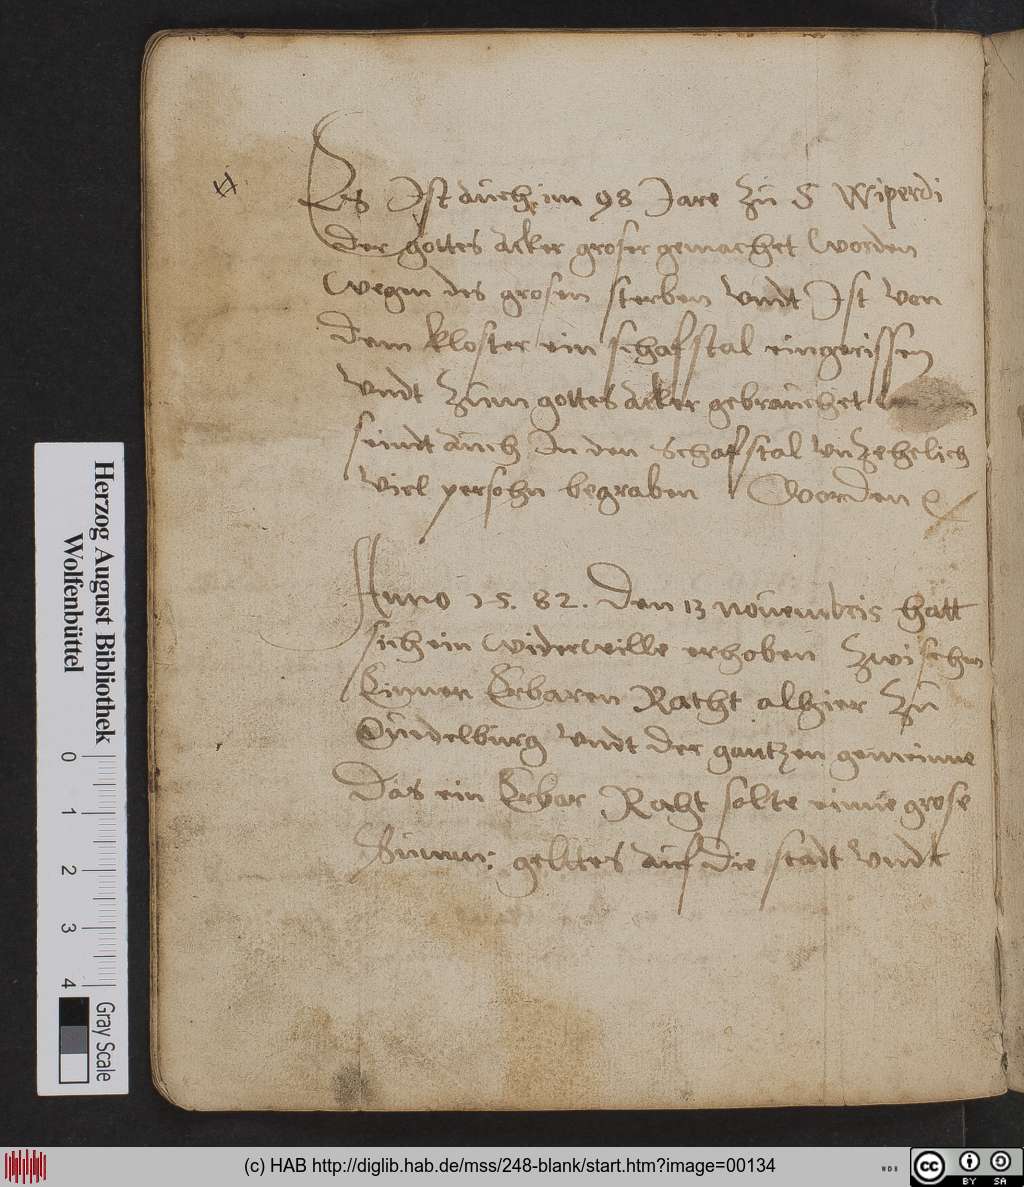 Es Ist auch im 98 Jare zu S Wiperdi
der gottes acker groser gemachet worden
wegen des grosen sterben vndt Ist von
dem kloster ein schafstal eingerissen
vndt zum gottes acker gebrauchet
seindt auch In den schafstal vnzehelich
viel persohn begraben worden
Anno 15.82. den 13 nouembris hatt
sich ein widerwille erhoben zwischen
Einen Erbaren Racht alhier zu
Quedelburg vndt der gantzen gemeinne
Das ein Erbar Raht solte einne grose
Summe geltes auf die stadt vndt
Herzog August Bibliothek
Wolfenbüttel
0 1 2 3 4
Gray Scale
(c) HAB http://diglib.hab.de/mss/248-blank/start.htm?image=00134
WDB
cc BY SA